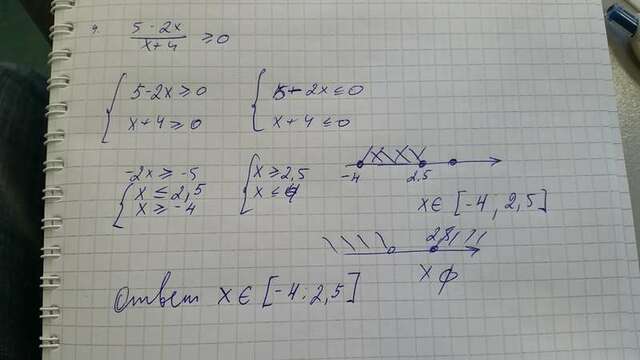 5-2x / x+4 ≥0
{ 5-2x≥0
x+4≥0
{ 5-2x≤0
x+4≤0
-2x≥-5
{ x≤2,5
x≥-4
{ x≥2,5
x≤-4
-4 2,5
x∈[-4, 2,5]
xф
Ответ x∈[-4; 2,5]